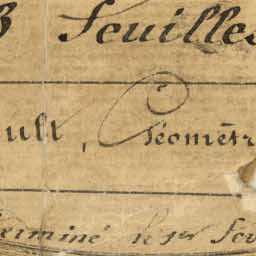 3 Feuilles
ult, Géomètr
erminé le 1er Fév